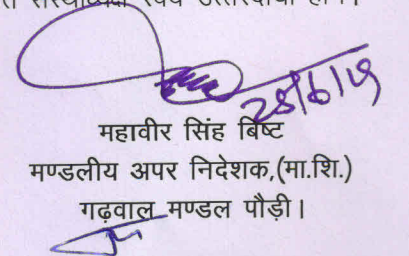 संस्थाध्यक्ष स्वयं उत्तरदायी होंगे।
28/6/19
महावीर सिंह बिष्ट
मण्डलीय अपर निदेशक,(मा.शि.)
गढ़वाल मण्डल पौड़ी।